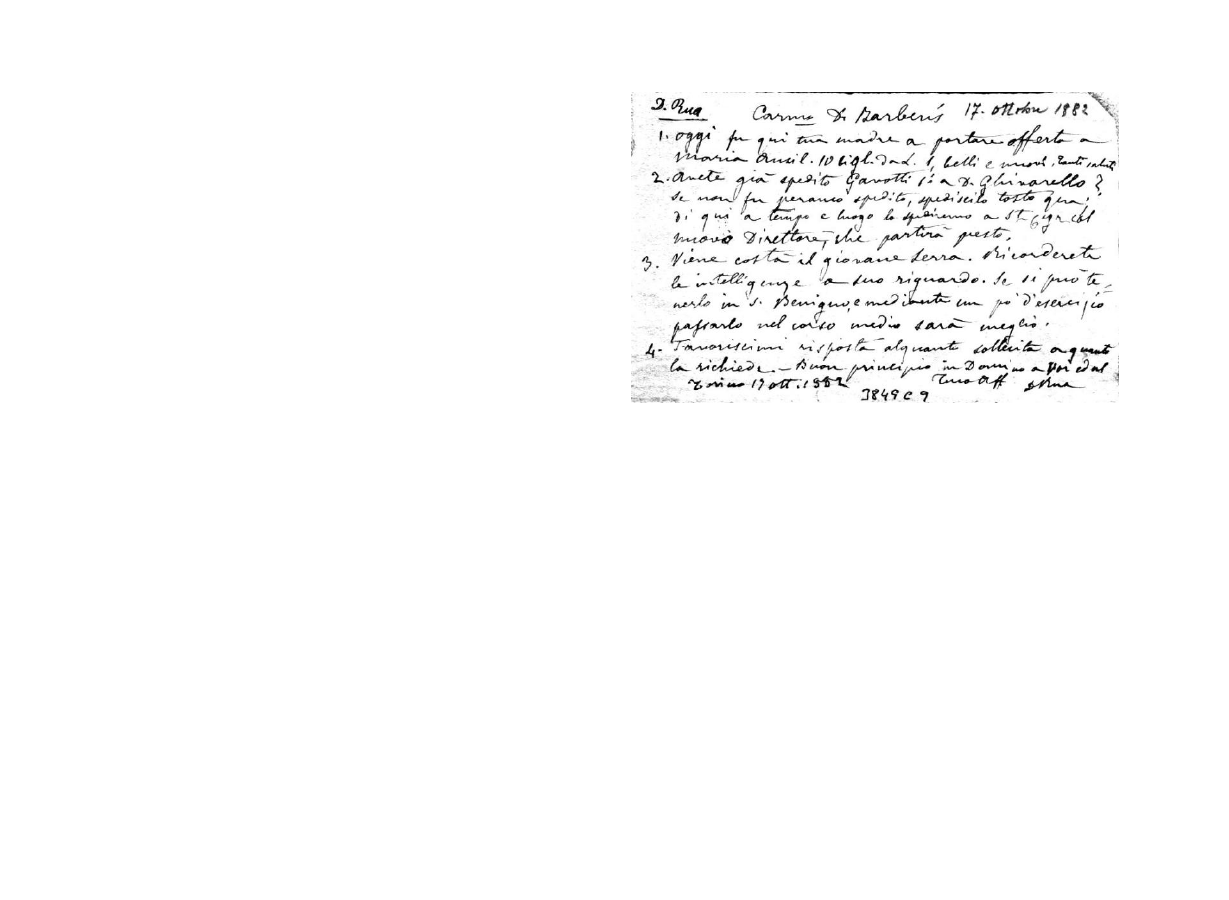 D. Rua
Car.mo D. Barberis 17. Ottobre 1882
1. Oggi fu qui tua madre a portare offerta a
Maria Ausil. 10 bigl. da L. 1, belli e nuovi. Tanti saluti
2. Avete già spedito Gavotti 1.° a D. Ghivarello?
Se non fu peranco spedito, spediscilo tosto qua;
di qui a tempo e luogo lo spediremo a St Cyr col
nuovo Direttore, che partirà presto.
3. Viene costà il giovane Serra. Ricorderete
le intelligenze a suo riguardo. Se si può te-
nerlo in S. Benigno, e mediante un po' d'esercizio
passarlo nel corso medio sarà meglio.
4. Favoriscimi risposta alquanto sollecita a quanto
la richiede. – Buon principio in Domino a Voi ed al
Torino 17 ott. 1882 Tuo Aff D Rua
3849 C 9